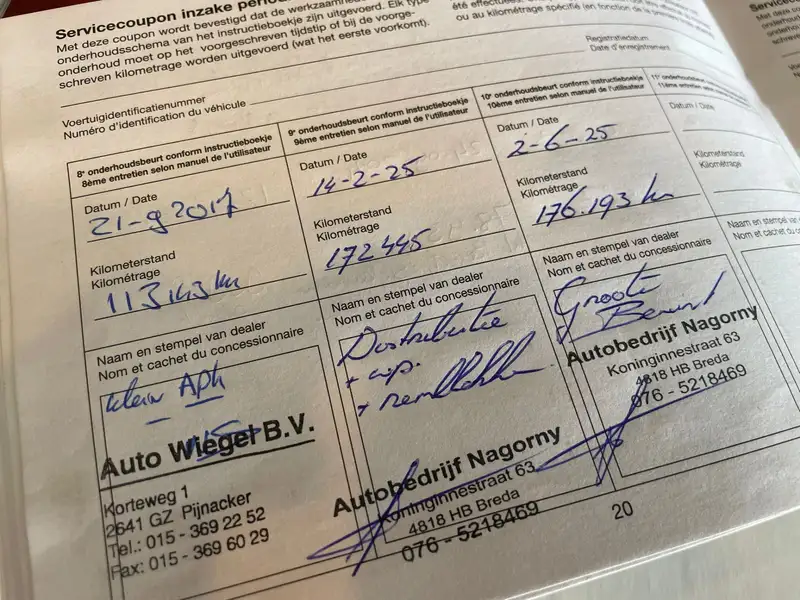 Servicecoupon inzake perio
Met deze coupon wordt bevestigd dat de werkzaamhe
onderhoudsschema van het instructieboekje zijn uitgevoerd. Elk type
onderhoud moet op het voorgeschreven tijdstip of bij de voorge-
schreven kilometrage worden uitgevoerd (wat het eerste voorkomt).
été effectuées
ou au kilométrage spécifié (en fonction de la première
Registratiedatum
Date d'enregistrement
Voertuigidentificatienummer
Numéro d'identification du véhicule
8e onderhoudsbeurt conform instructieboekje
8ème entretien selon manuel de l'utilisateur
Datum / Date
21-9 2017
Kilometerstand
Kilométrage
113143 km
Naam en stempel van dealer
Nom et cachet du concessionnaire
klein APk
Auto Wiegel B.V.
Korteweg 1
2641 GZ Pijnacker
Tel.: 015 - 369 22 52
Fax: 015 - 369 60 29
9e onderhoudsbeurt conform instructieboekje
9ème entretien selon manuel de l'utilisateur
Datum / Date
14-2-25
Kilometerstand
Kilométrage
172445
Naam en stempel van dealer
Nom et cachet du concessionnaire
Distributie
+ wp.
+
Autobedrijf Nagorny
Koninginnestraat 63
4818 HB Breda
076 - 5218469
10e onderhoudsbeurt conform instructieboekje
10ème entretien selon manuel de l'utilisateur
Datum / Date
2-6-25
Kilometerstand
Kilométrage
176.193 km
Naam en stempel van dealer
Nom et cachet du concessionnaire
Groote
Beurt
Autobedrijf Nagorny
Koninginnestraat 63
4818 HB Breda
076 - 5218469
11e onderhoudsbeurt
11ème entretien selon
Datum / Date
Kilometerstand
Kilométrage
Naam en stempel van
Nom et cachet du con
20